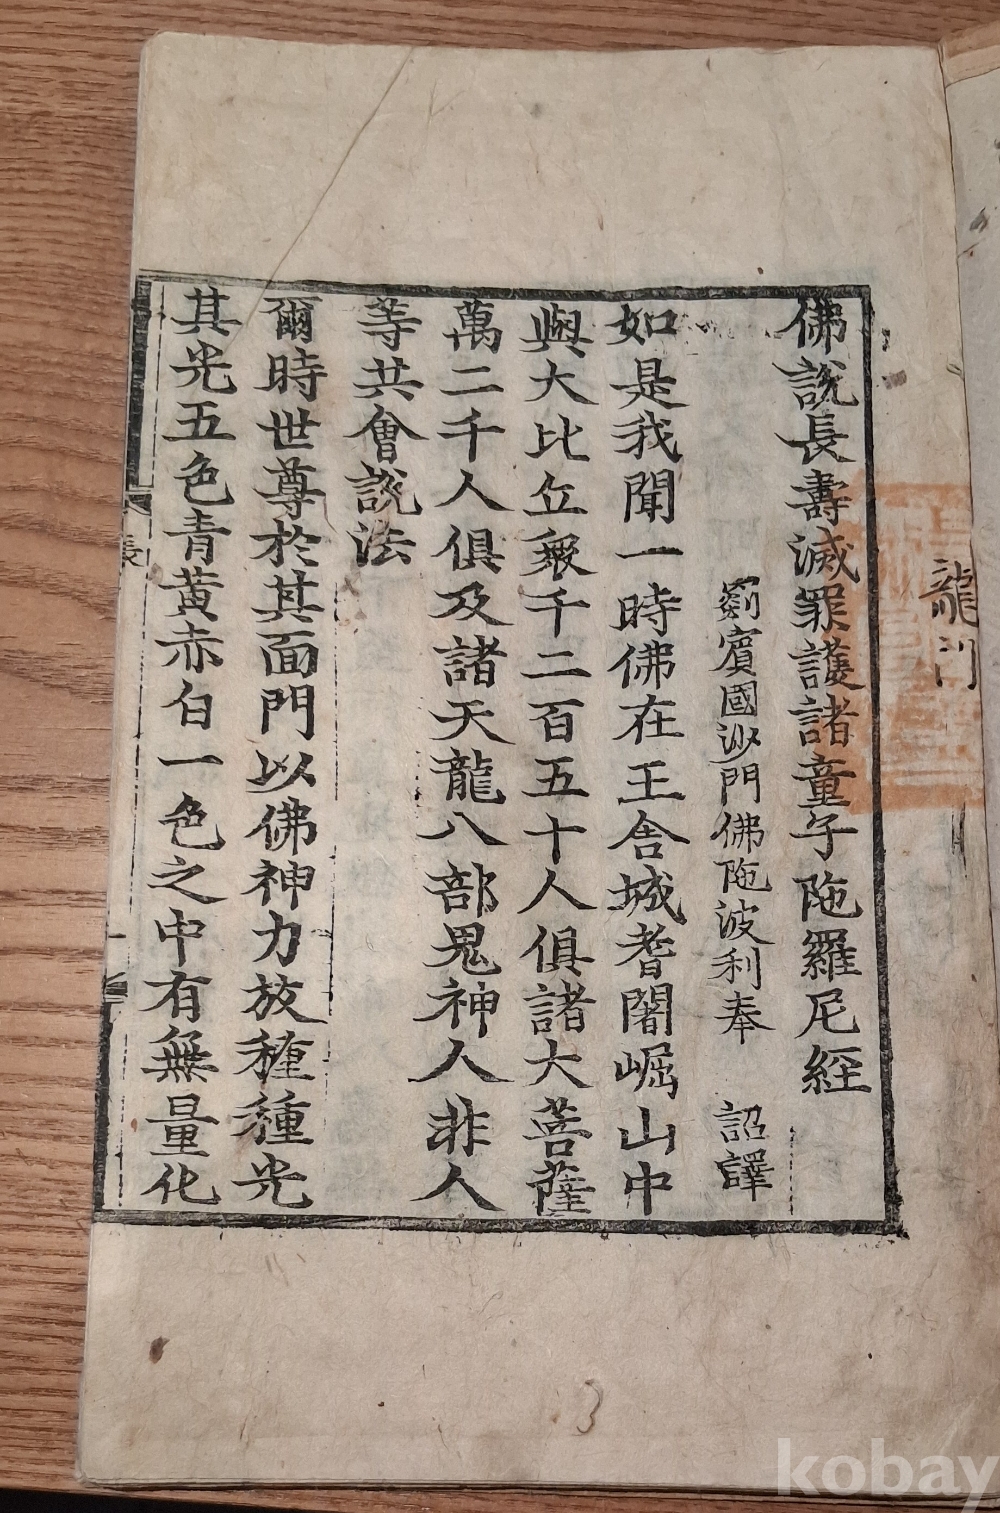 龍門
佛說長壽滅罪護諸童子陁羅尼經
罽賓國沙門佛陁波利奉 詔譯
如是我聞一時佛在王舍城耆闍崛山中
與大比丘衆千二百五十人俱諸大菩薩
萬二千人俱及諸天龍八部鬼神人非人
等共會說法
爾時世尊於其面門以佛神力放種種光
其光五色青黃赤白一色之中有無量化
長
一
3
kobay